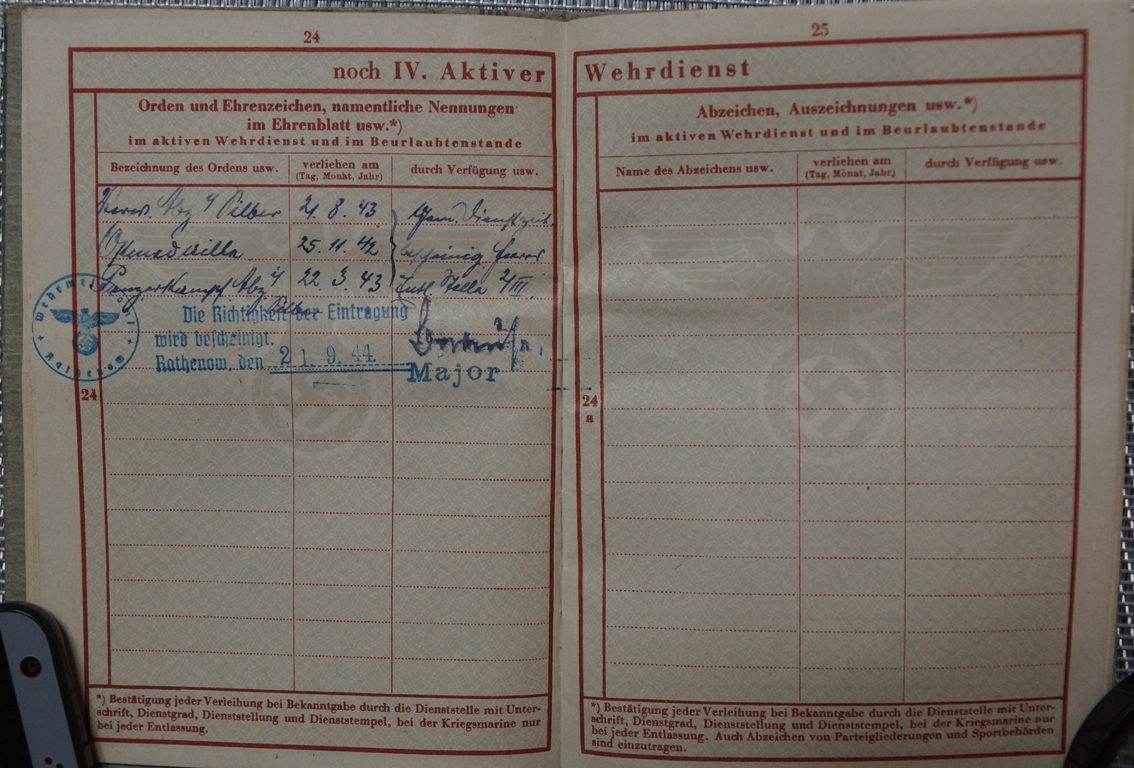 24
noch IV. Aktiver
Orden und Ehrenzeichen, namentliche Nennungen
im Ehrenblatt usw.*)
im aktiven Wehrdienst und im Beurlaubtenstande
Bezeichnung des Ordens usw.
verliehen am
(Tag, Monat, Jahr)
durch Verfügung usw.
Verw. Abz Silber 21. 8. 43 Gem. Dienstzeit
Ostmedaille 25. 11. 42
Panzerkampf Abz 22. 3. 43 Entl. Stelle 2/III.
Silber
Die Richtigkeit der Eintragung
wird bescheinigt.
Rathenow, den 21. 9. 44.
Major
Rathenow
24
*) Bestätigung jeder Verleihung bei Bekanntgabe durch die Dienststelle mit Unter-
schrift, Dienstgrad, Dienststellung und Dienststempel, bei der Kriegsmarine nur
bei jeder Entlassung.
25
Wehrdienst
Abzeichen, Auszeichnungen usw.*)
im aktiven Wehrdienst und im Beurlaubtenstande
Name des Abzeichens usw.
verliehen am
(Tag, Monat, Jahr)
durch Verfügung usw.
24
a
*) Bestätigung jeder Verleihung bei Bekanntgabe durch die Dienststelle mit Unter-
schrift, Dienstgrad, Dienststellung und Dienststempel, bei der Kriegsmarine nur
bei jeder Entlassung. Auch Abzeichen von Parteigliederungen und Sportbehörden
sind einzutragen.